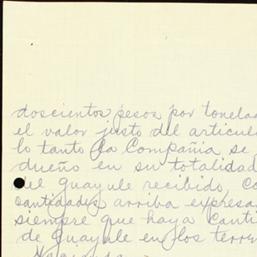 doscientos pesos por tonelad
el valor justo del articul
lo tanto la Compañia se
dueño en su totalidad
del guayule recibido, co
cantidades arriba expresa
siempre que haya canti
de guayule en los terre